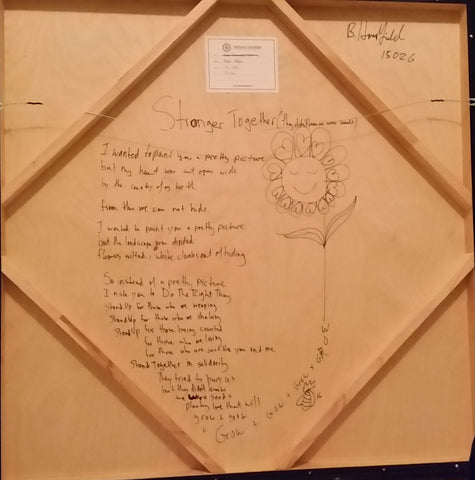 B. Hounfield
15026
Stronger Together (They didn't know we were seeds)
I wanted to paint you a pretty picture
but my heart was cut open wide
by the country of my birth
from this we can not hide
I wanted to paint you a pretty picture
but the landscape grew divided
flowers wilted, white cloaks out of hiding
So instead of a pretty picture
I ask you to Do The Right Thing
Stand Up for those who are weeping
Stand Up for those who are shaking
Stand Up for those being counted
for those who are
for those who are you and me
Stand Together in solidarity
They tried to bury us
but they didn't know
we were seeds
planting love that will
grow & grow
+ Grow + Grow + Grow + Grow